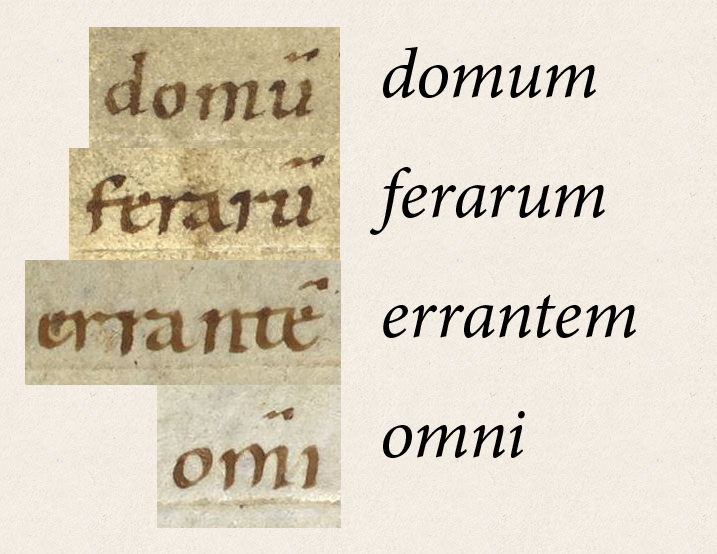 domū domum
ferarū ferarum
errantē errantem
om̄i omni